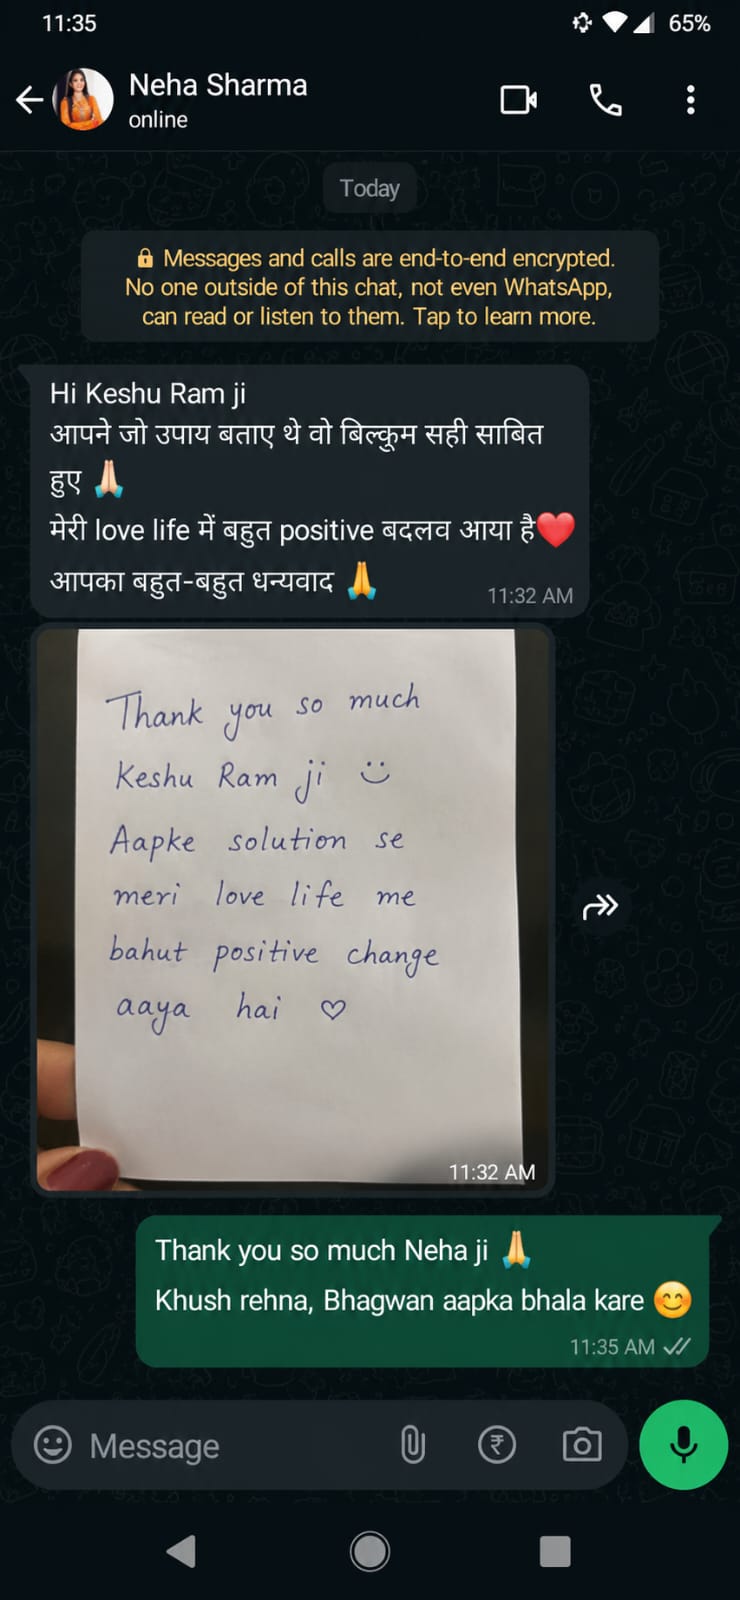 11:35
65%
Neha Sharma
online
Today
Messages and calls are end-to-end encrypted.
No one outside of this chat, not even WhatsApp,
can read or listen to them. Tap to learn more.
Hi Keshu Ram ji
आपने जो उपाय बताए थे वो बिल्कुम सही साबित
हुए 🙏🏻
मेरी love life में बहुत positive बदलव आया है❤️
आपका बहुत-बहुत धन्यवाद 🙏
11:32 AM
Thank you so much
Keshu Ram ji ☺
Aapke solution se
meri love life me
bahut positive change
aaya hai ♡
11:32 AM
Thank you so much Neha ji 🙏
Khush rehna, Bhagwan aapka bhala kare 😊
11:35 AM
Message